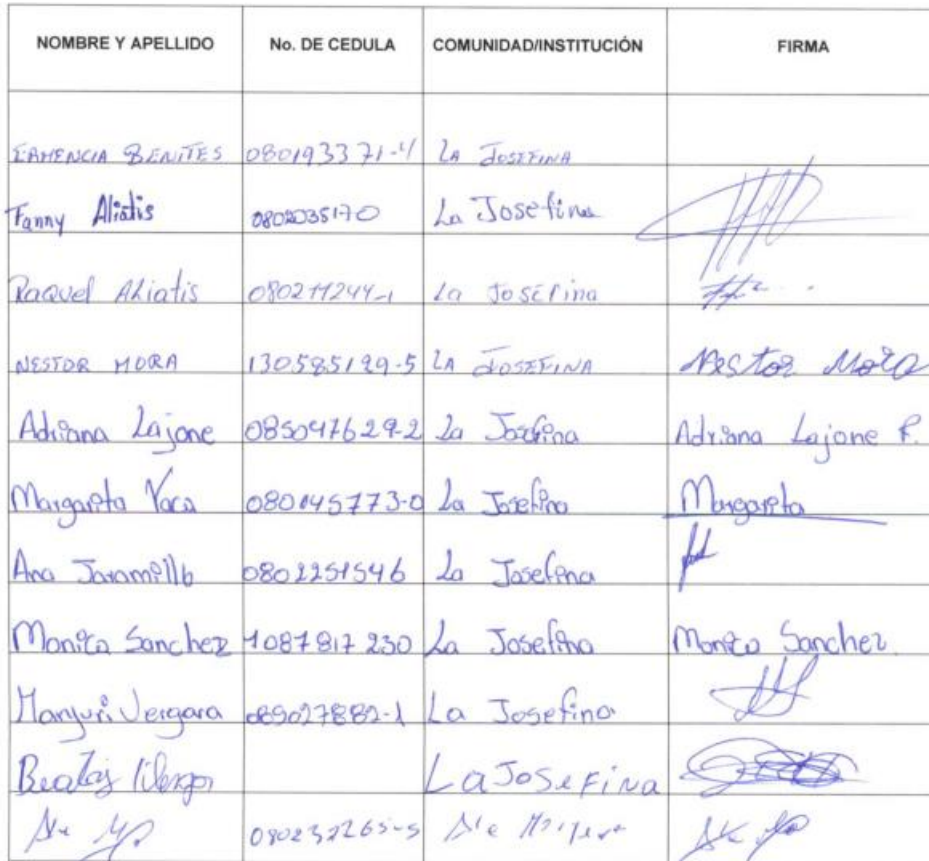 NOMBRE Y APELLIDO No. DE CEDULA COMUNIDAD/INSTITUCIÓN FIRMA
ERMENCIA BENITES 080193371-4 LA JOSEFINA
Fanny Aliatis 0802035170 La Josefina
Raquel Aliatis 080211244-1 La Josefina
NESTOR MORA 130585129-5 LA JOSEFINA Nestor Mora
Adriana Lajone 085047629-2 La Josefina Adriana Lajone P.
Margarita Vaca 080145773-0 La Josefina Margarita
Ana Jaramillo 0802251546 La Josefina
Monica Sanchez 1087817230 La Josefina Monica Sanchez
Maryuri Vergara 085027882-1 La Josefina
Beatriz La JOSEFINA
080232265-5